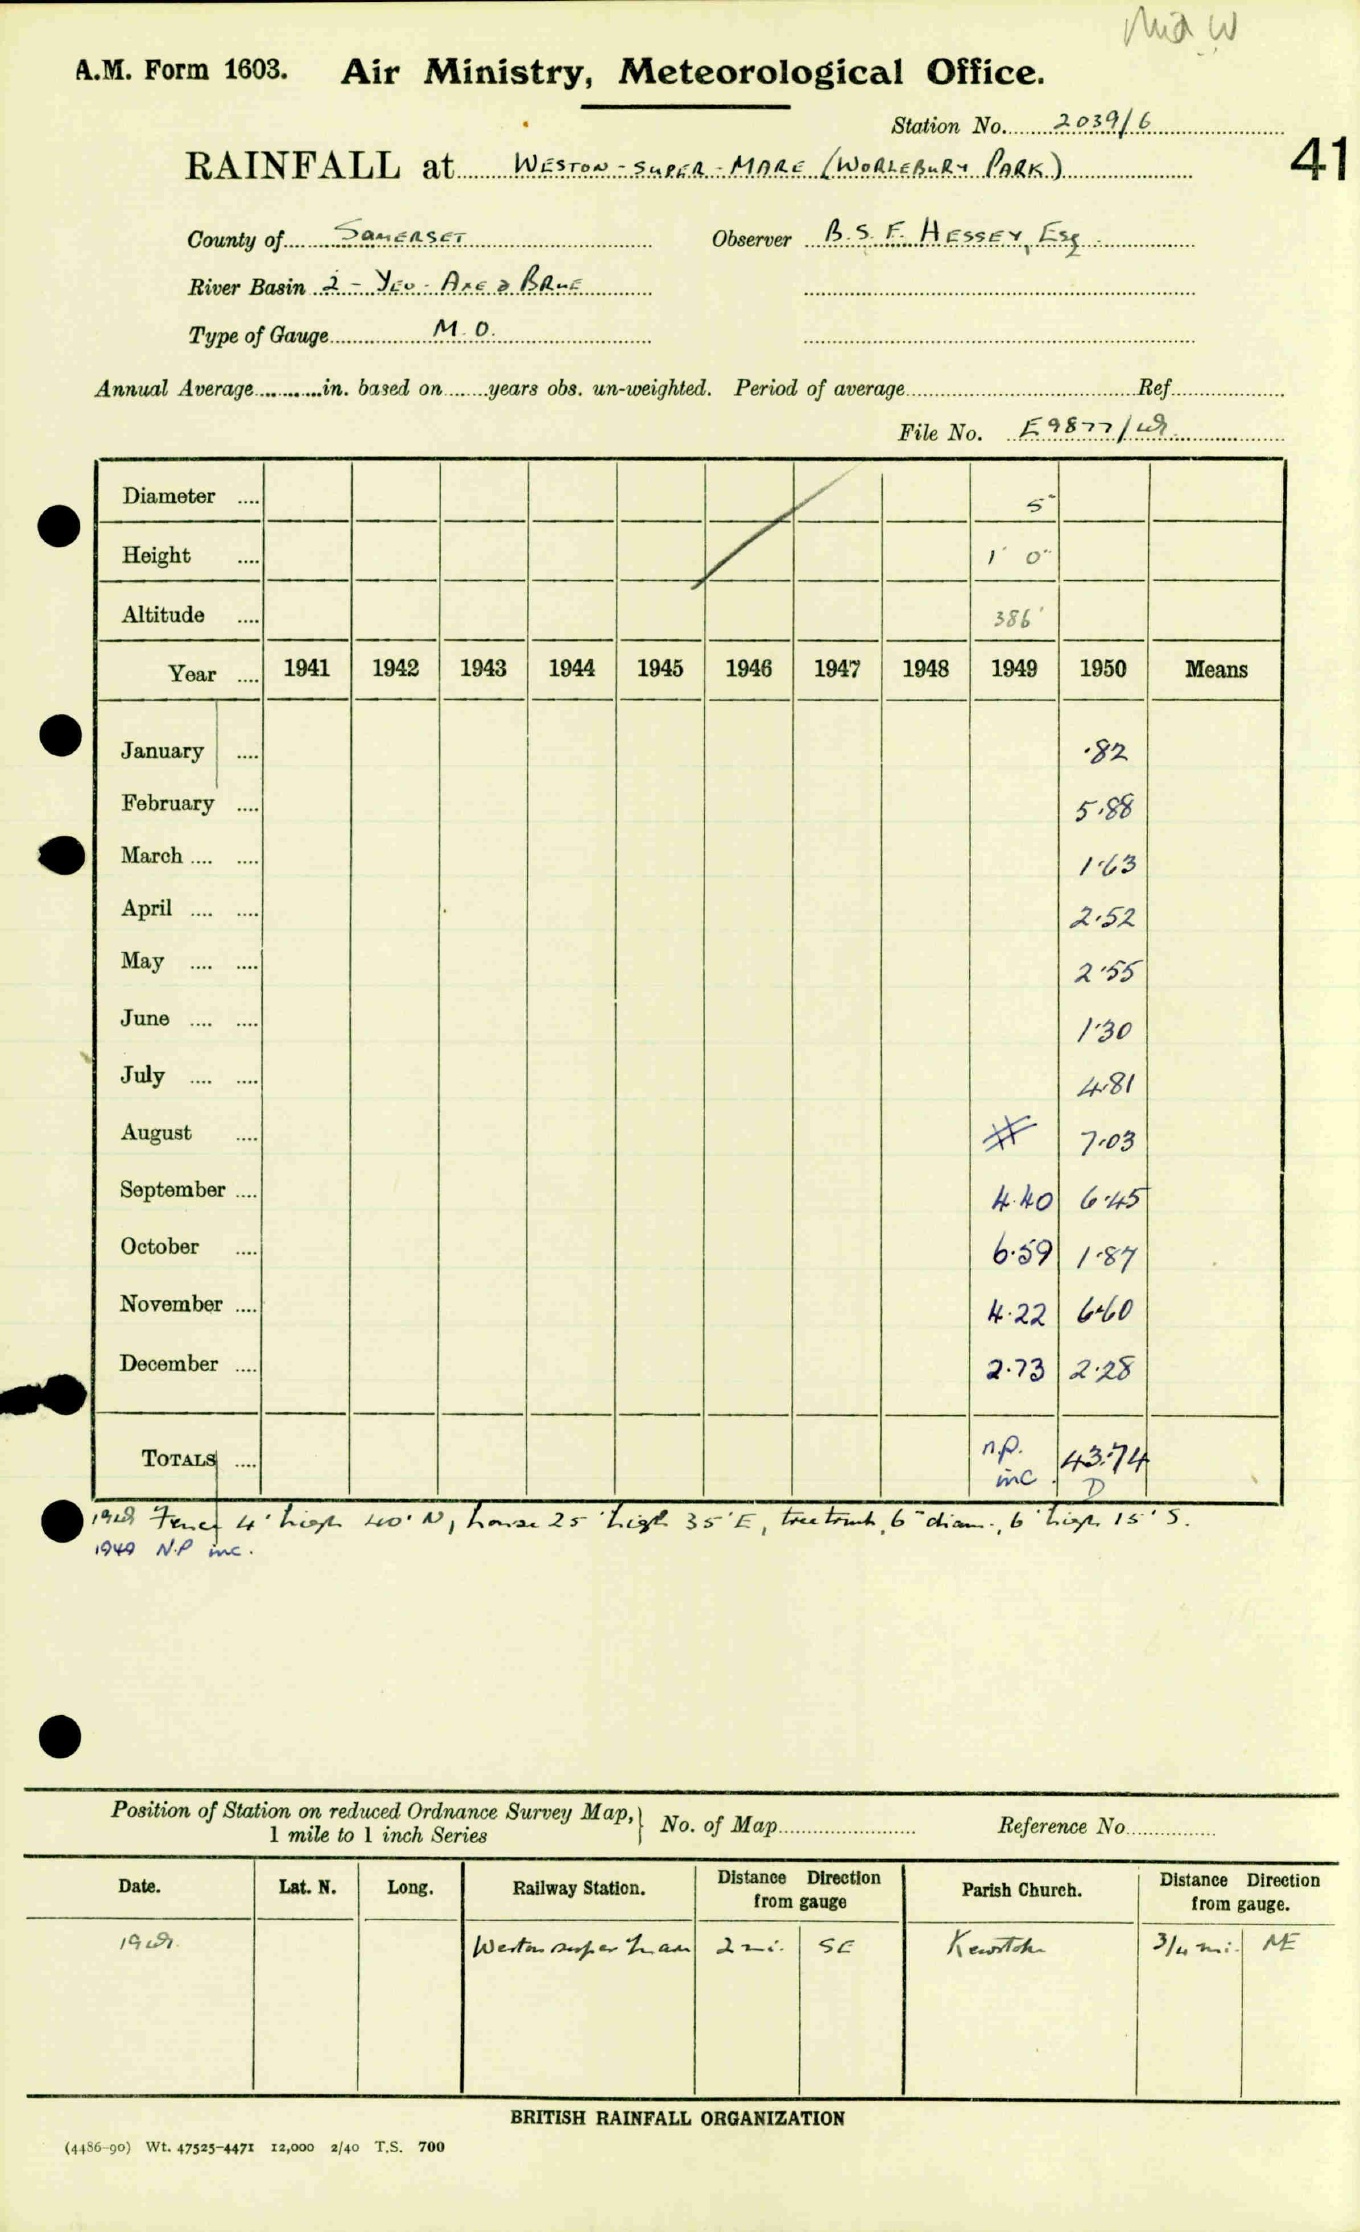 A.M. Form 1603. Air Ministry, Meteorological Office.
Station No. 2039/6
RAINFALL at WESTON-SUPER-MARE (WORLEBURY PARK)
41
County of SOMERSET Observer B.S.F. HESSEY, Esq
River Basin 2 - YEO - AXE & BRUE
Type of Gauge M.O.
Annual Average in. based on years obs. un-weighted. Period of average Ref
File No. E9877/49
Diameter 5"
Height 1' 0"
Altitude 386'
Year 1941 1942 1943 1944 1945 1946 1947 1948 1949 1950 Means
January ·82
February 5·88
March 1·63
April 2·52
May 2·55
June 1·30
July 4·81
August 7·03
September 4·40 6·45
October 6·59 1·87
November 4·22 6·60
December 2·73 2·28
TOTALS n.p. inc 43·74 D
1949 Fence 4' high 40' N, house 25' high 35' E, tree trunk, 6" diam., 6' high 15' S.
1949 N.P inc.
Position of Station on reduced Ordnance Survey Map, 1 mile to 1 inch Series } No. of Map Reference No
Date. Lat. N. Long. Railway Station. Distance Direction from gauge Parish Church. Distance Direction from gauge.
1949 Weston super Mare 2 mi. SE Kewstoke 3/4 mi. NE
BRITISH RAINFALL ORGANIZATION
(4486-90) Wt. 47525-4471 12,000 2/40 T.S. 700